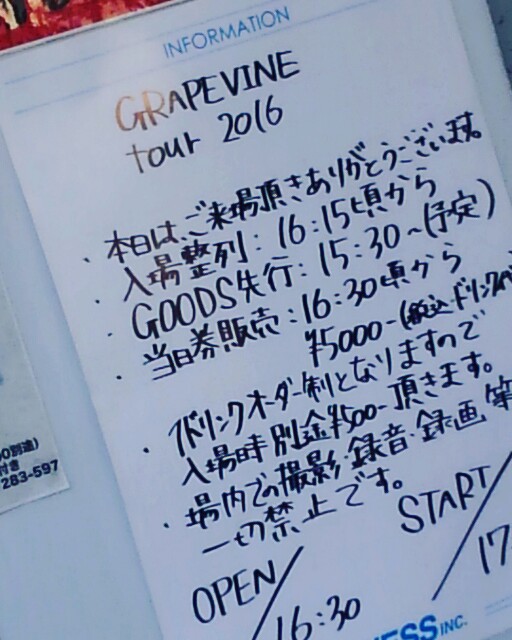 INFORMATION
GRAPEVINE
tour 2016
・本日は、ご来場頂きありがとうございます。
・入場整列：16:15頃から
・GOODS先行：15:30〜(予定)
・当日券販売：16:30頃から
¥5000-(税込ドリンク
・1ドリンクオーダー制となりますので
入場時別金¥500-頂きます。
・場内での撮影・録音・録画等
一切禁止です。
OPEN/
16:30
START/
17:
INC.
0別途)
付き
283-597